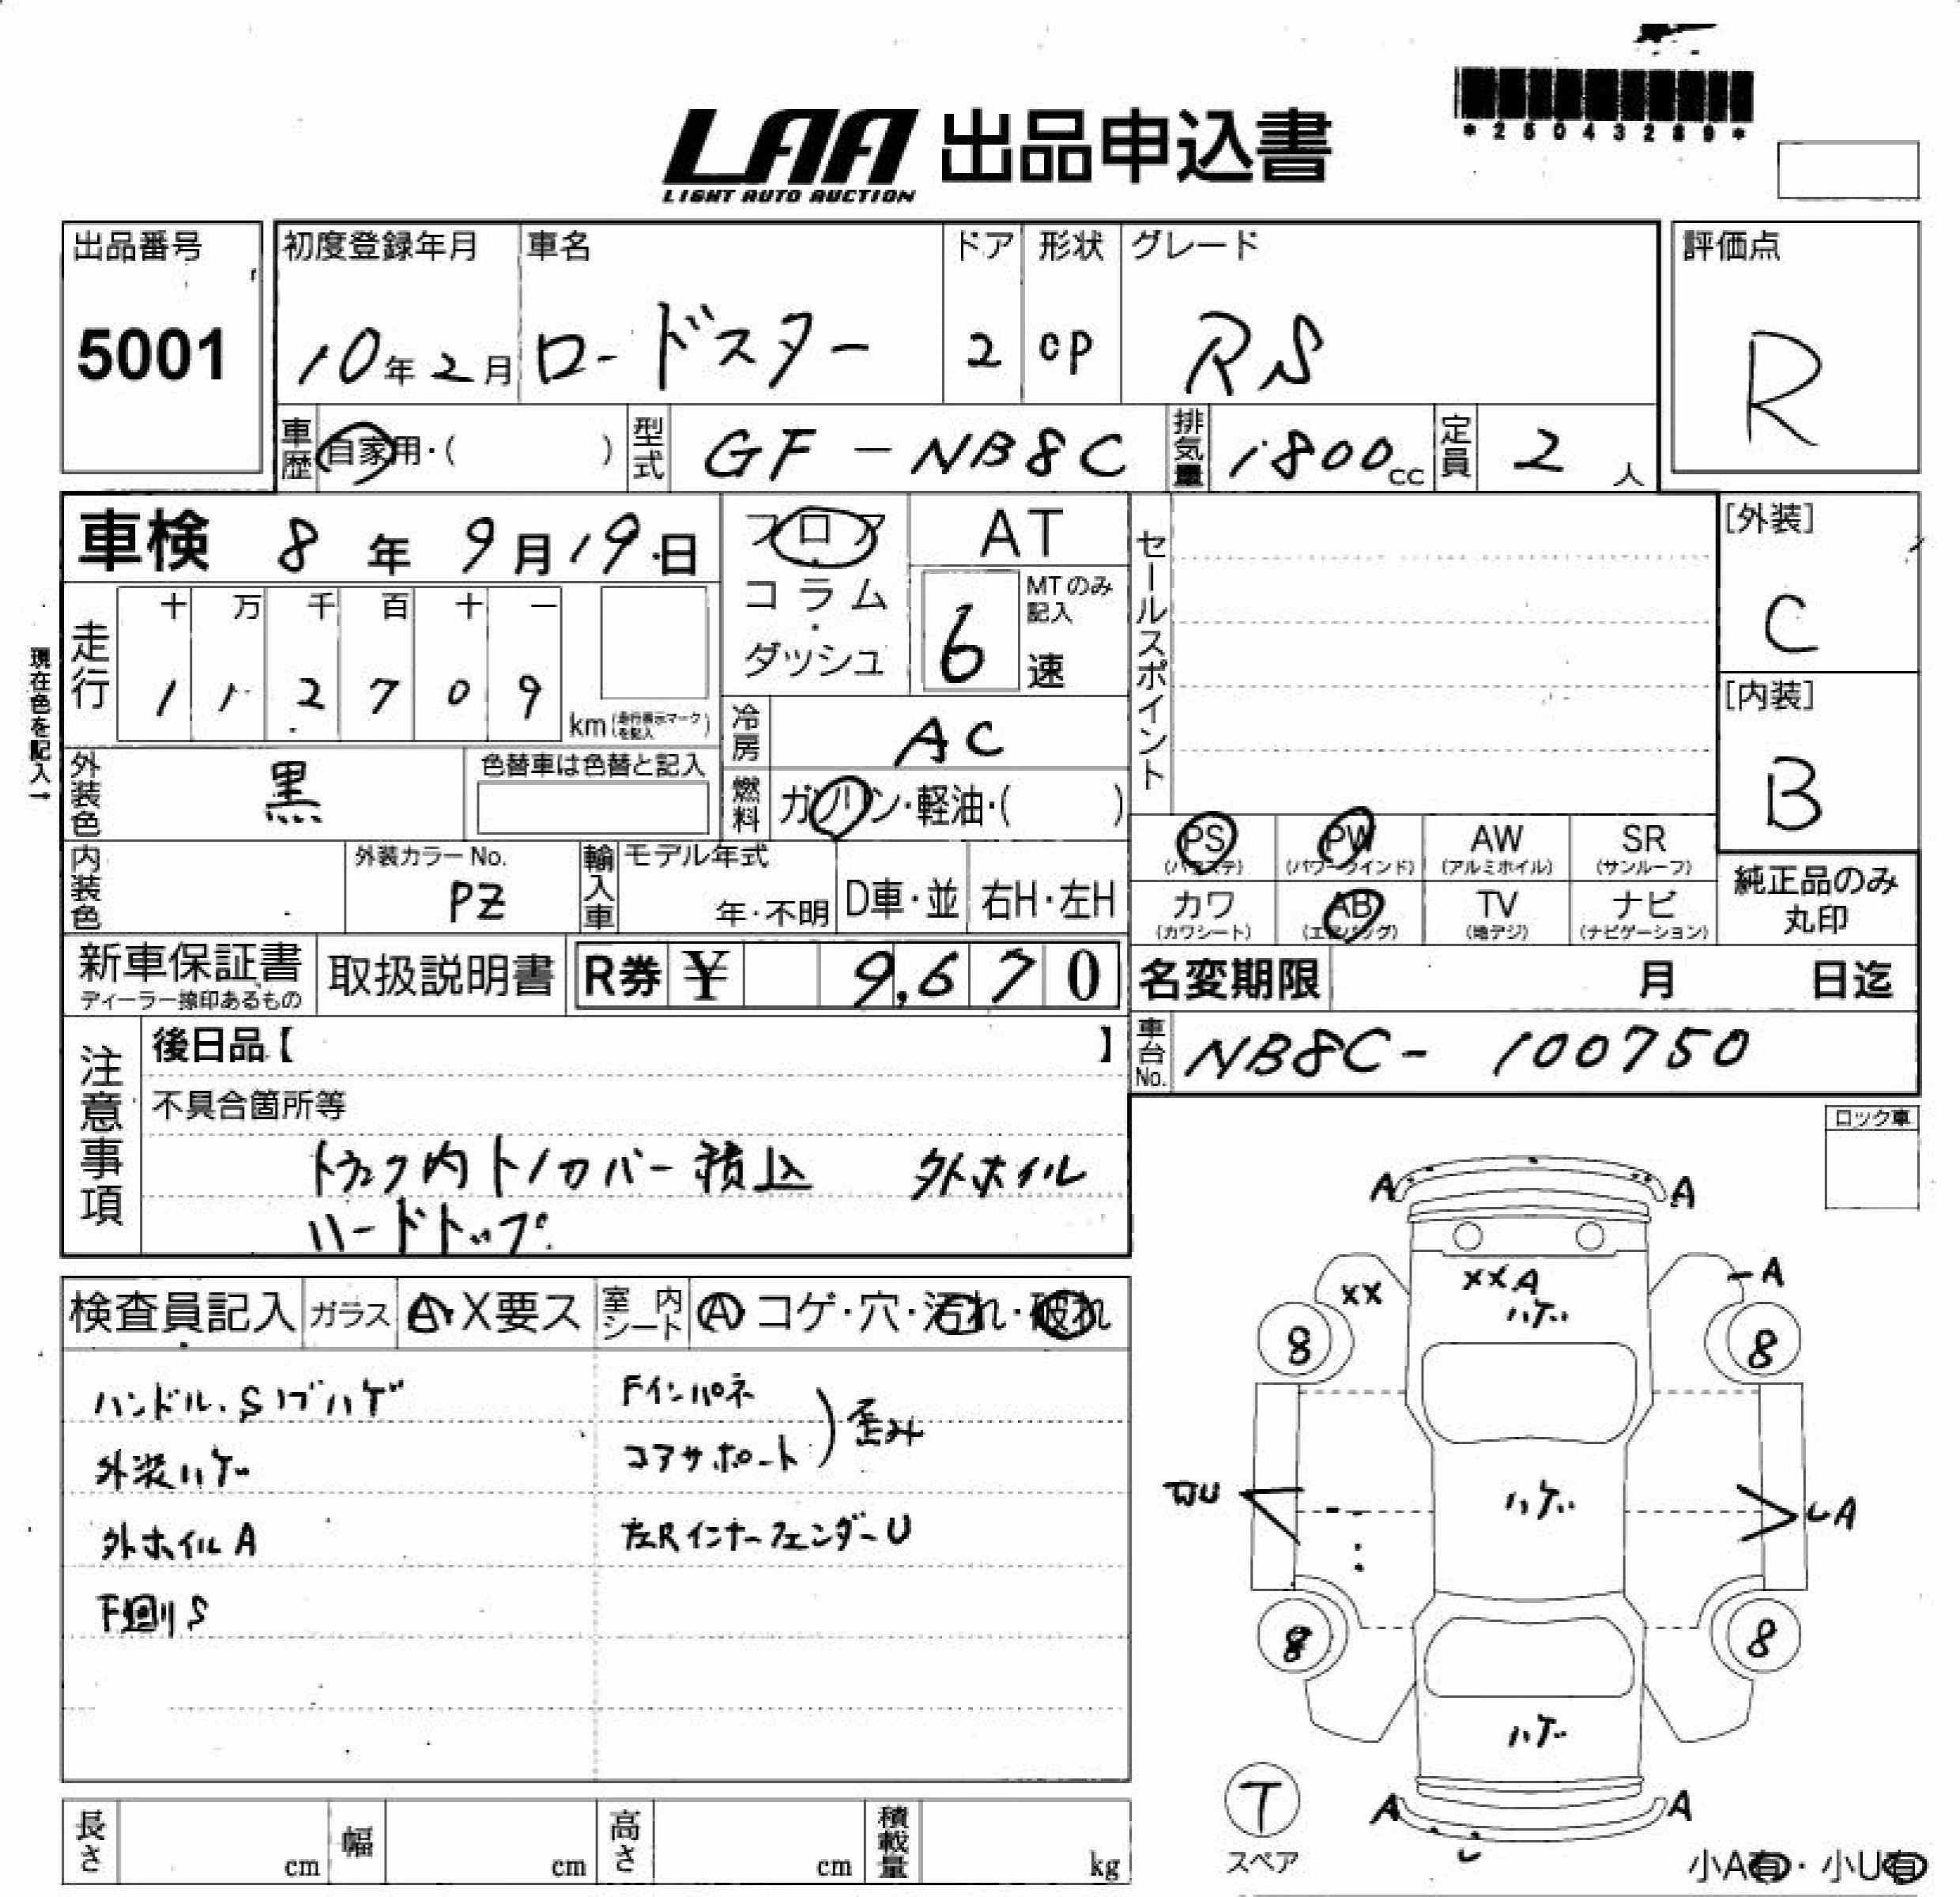 *25043289*
LAA 出品申込書
LIGHT AUTO AUCTION
出品番号 5001
初度登録年月 10年2月
車名 ロードスター
ドア 2
形状 CP
グレード RS
評価点 R
車歴 自家用・( )
型式 GF-NB8C
排気量 1800cc
定員 2人
車検 8年9月19日
フロア・コラム・ダッシュ
AT
6速 MTのみ記入
セールスポイント
[外装] C
[内装] B
現在色を記入→
走行 十 万 千 百 十 一
1 1 2 7 0 9 km(走行表示マークを記入)
冷房 AC
外装色 黒
色替車は色替と記入
燃料 ガソリン・軽油・( )
PS (パワステ)
PW (パワーウインド)
AW (アルミホイル)
SR (サンルーフ)
カワ (カワシート)
AB (エアバッグ)
TV (地デジ)
ナビ (ナビゲーション)
純正品のみ丸印
内装色
外装カラーNo. PZ
輸入車 モデル年式 年・不明
D車・並
右H・左H
新車保証書
ディーラー捺印あるもの
取扱説明書
R券 ¥ 9,670
名変期限 月 日迄
車台No. NB8C-100750
注意事項
後日品【 】
不具合箇所等
トランク内トノカバー積込 外ホイル
ハードトップ
検査員記入 ガラス A・X要ス
室内シート A・コゲ・穴・汚れ・破れ
ハンドル.Sノブハゲ
外装ハゲ
外ホイルA
下廻りS
Fインパネ
コアサポート
)歪み
左RインナーフェンダーU
ロック車
A A
XX
XXA
ハゲ
-A
8 8
ハゲ
A
8 8
ハゲ
T
スペア
A A
小A有・小U有
長さ cm
幅 cm
高さ cm
積載量 kg